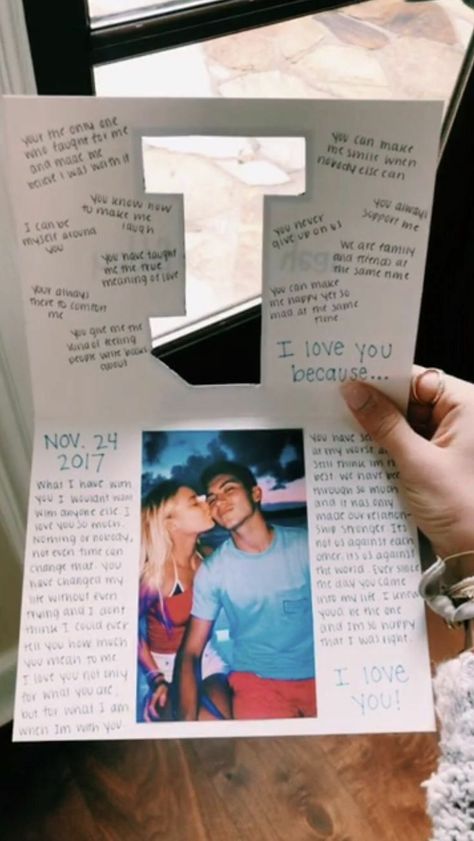 your the only one
who fought for me
and made me
believe I was worth it
You know how
to make me
laugh
I can be
myself around
you
You have taught
me the true
meaning of love
Your always
there to comfort
me
You give me the
kind of feeling
people write books
about
You can make
me smile when
nobody else can
You always
support me
You never
give up on us
We are family
and friends at
the same time
You can make
me happy yet so
mad at the same
time
I love you
because...
NOV. 24
2017
What I have with
you I wouldnt want
with anyone else. I
love you so much.
Nothing or nobody,
not even time can
change that. You
have changed my
life without even
trying and I dont
think I could ever
tell you how much
you mean to me
I love you not only
for what you are,
but for what I am
when Im with you
You have
at my worst
still think im
best. We have been
through so much
and it has only
made our relation-
ship stronger. Its
not us against each
other, its us against
the world. Ever since
the day you came
into my life I knew
youd be the one
and Im so happy
that I was right.
I love
you!